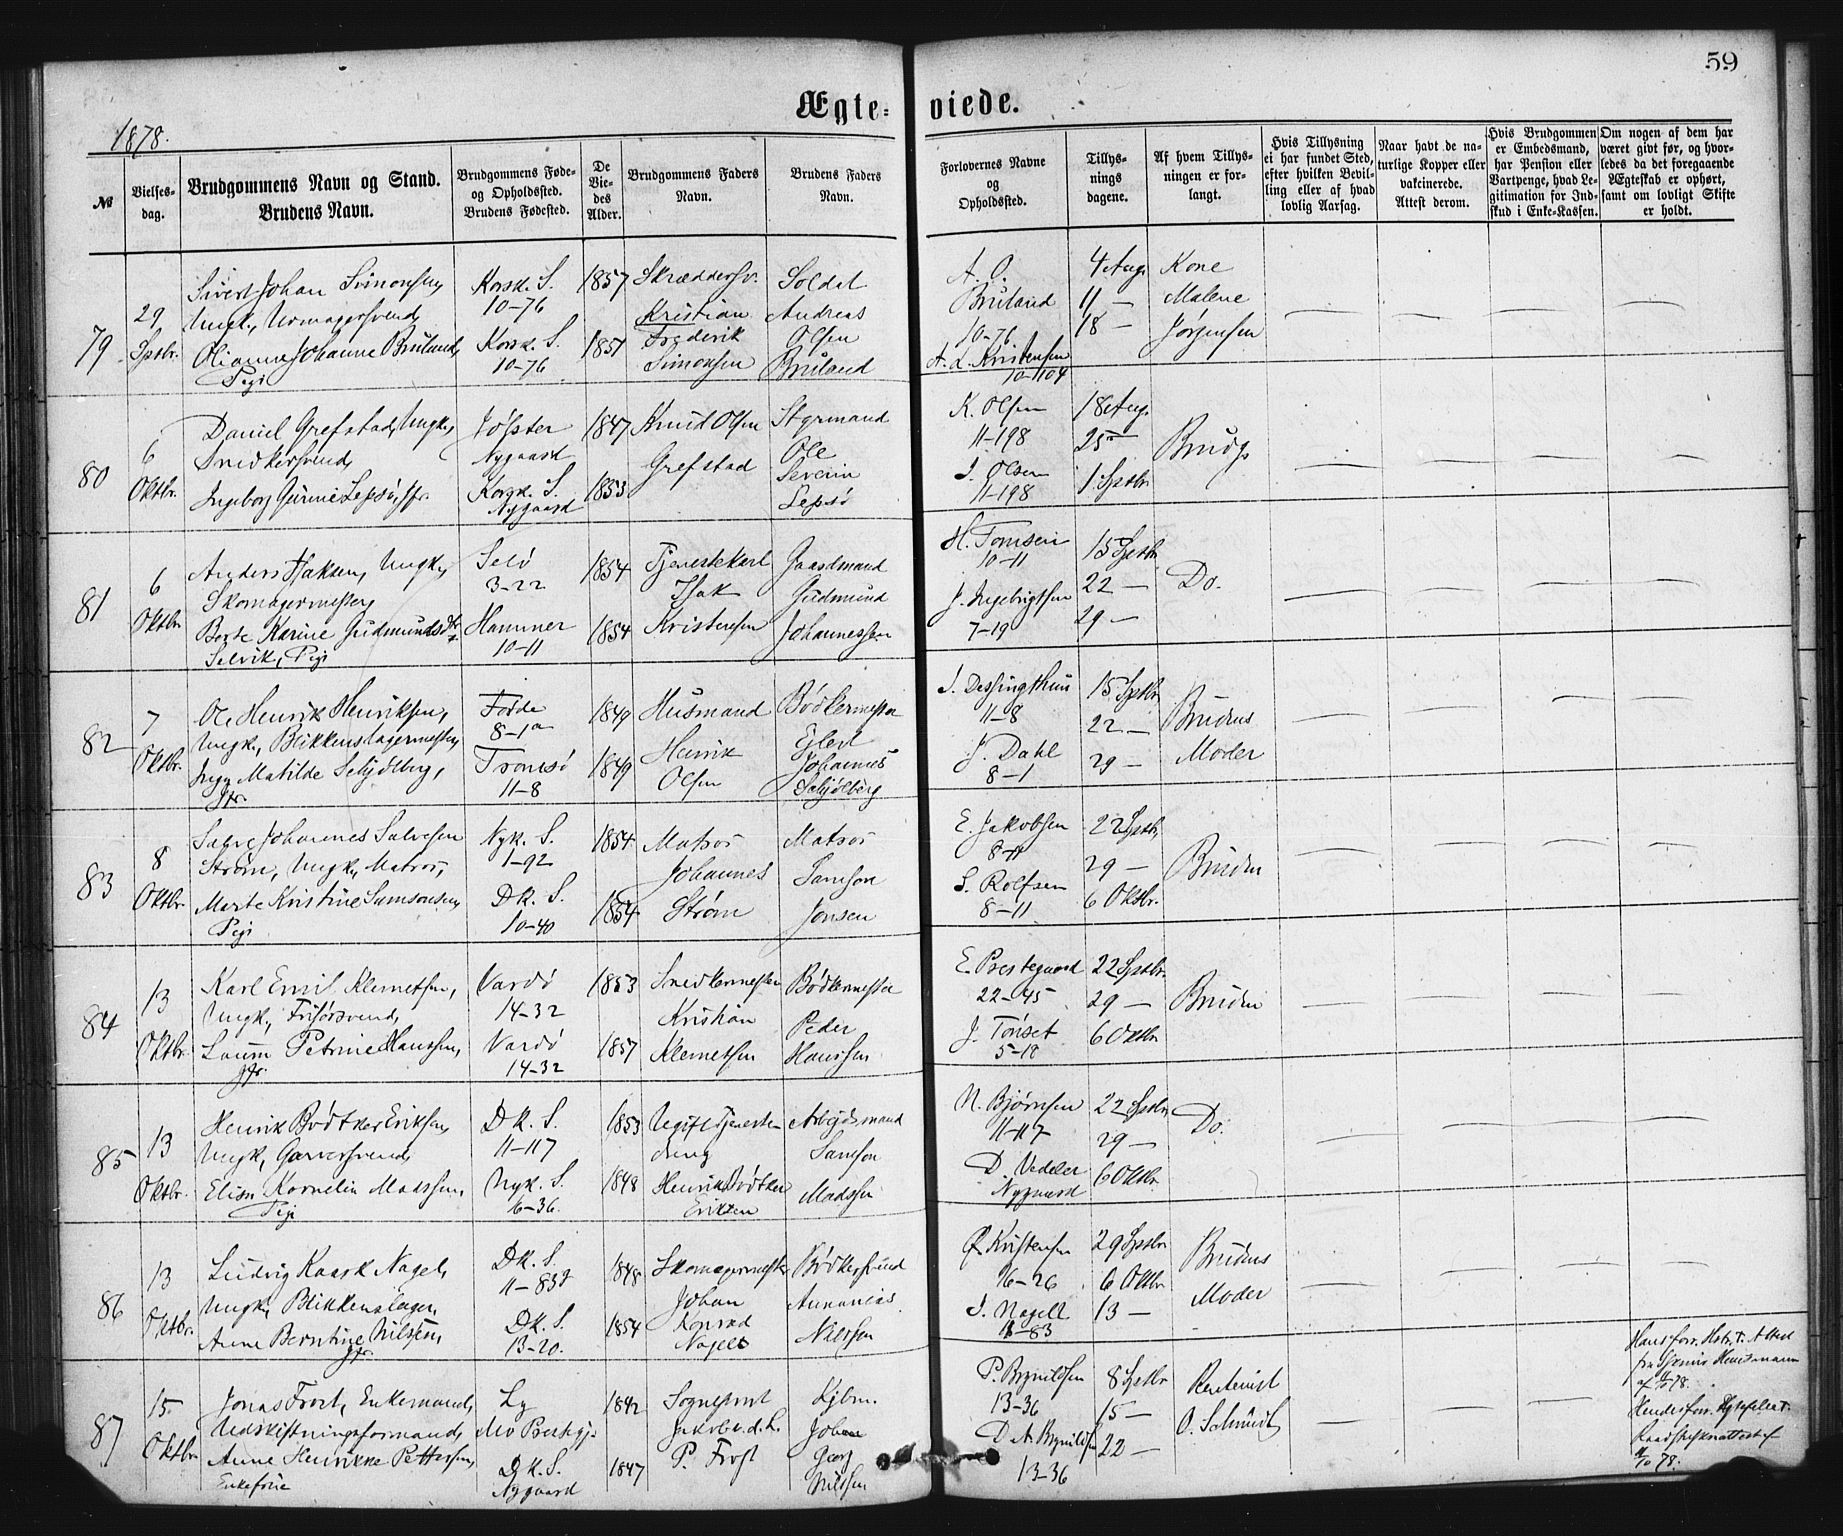 59
Ægte-viede.
1878.
№
Vielses-
dag.
Brudgommens Navn og Stand.
Brudens Navn.
Brudgommens Føde-
og Opholdssted.
Brudens Fødested.
De
Vie-
des
Alder.
Brudgommens Faders
Navn.
Brudens Faders
Navn.
Forlovernes Navne
og
Opholdssted.
Tillys-
nings
dagene.
Af hvem Tillys-
ningen er for-
langt.
Hvis Tillysning
ei har fundet Sted,
efter hvilken Bevil-
ling eller af hvad
lovlig Aarsag.
Naar havt de na-
turlige Kopper eller
vakcinerede.
Attest derom.
Hvis Brudgommen
er Embedsmand,
har Pension eller
Vartpenge, hvad Le-
gitimation for Ind-
skud i Enke-Kassen.
Om nogen af dem har
været givt før, og hvor-
ledes da det foregaaende
Ægteskab er ophørt,
samt om lovligt Skifte
er holdt.
79
29
Sptbr.
Sivert Johan Simonsen,
Ungk., Urmagersvend,
Oliane Johanne Bruland,
Pige
Korsk. S.
10-76
Korsk. S.
10-76
1857
1857
Skræddersv.
Kristian
Frederik
Simonsen
Soldat
Andreas
Olsen
Bruland
A. O.
Bruland
10-76
A. L. Kristensen
10-104
4 Aug.
11 —
18 —
Kone
Malene
Jørgensen
80
6
Oktbr.
Daniel Grefstad, Ungk.,
Snedkersvend,
Ingeborg Gurine Lepsø, Jfr.
Jølster
Nygaard
Korsk. S.
Nygaard
1847
1853
Knud Olsen
Grefstad
Styrmand
Ole
Severin
Lepsø
K. Olsen
11-198
J. Olsen
11-198
18 Aug.
25 —
1. Sptbr.
Brudg.
81
6
Oktbr.
Anders Isaksen, Ungk.,
Skomagermester,
Berte Karine Gudmundsdtr.
Selvik, Pige
Selø
3-22
Hammer
10-11
1854
1854
Tjenestekarl
Isak
Kristensen
Gaardmand
Gudmund
Johannessen
H. Tomsen
10-11
J. Ingebrigtsen
7-19
15 Sptbr.
22 —
29 —
Do.
82
7
Oktbr.
Ole Henrik Henriksen,
Ungk., Blikkenslagermester,
Inga Matilde Schjølberg,
Jfr.
Førde
8-1a
Tromsø
11-8
1849
1849
Husmand
Henrik
Olsen
Bødkermester
Eilert
Johannes
Schjølberg
J. Dessingthun
11-8
J. Dahl
8-1
15 Sptbr.
22 —
29 —
Brudens
Moder
83
8
Oktbr.
Salve Johannes Salvesen
Strøm, Ungk., Matros,
Marte Kristine Samsonsen,
Pige
Nyk. S.
1-92
Dk. S.
10-40
1854
1854
Matros
Johannes
Strøm
Matros
Samson
Jonsen
E. Jakobsen
8-11
S. Rolfsen
8-11
22 Sptbr.
29 —
6 Oktbr.
Bruden
84
13
Oktbr.
Karl Emil Klemetsen,
Ungk., Frisørsvend,
Laura Petrine Hanssen,
Jfr.
Vardø
14-32
Vardø
14-32
1853
1857
Snedkermester
Kristian
Klemetsen
Bødkermester
Peder
Hanssen
E. Prestegaard
22-45
J. Tønset
5-18
22 Sptbr.
29 —
6 Oktbr.
Bruden
85
13
Oktbr.
Henrik Bødtker Eriksen,
Ungk., Garversvend,
Elisa Kornelia Madssen,
Pige
Dk. S.
11-117
Nyk. S.
16-36.
1853
1848
Ugift Tjeneste-
dreng
Henrik Bødtker
Eriksen
Arbejdsmand
Samson
Madssen
N. Bjørnsen
11-117
D. Vedeler
Nygaard
22 Sptbr.
29 —
6 Oktbr.
Do.
86
13
Oktbr.
Ludvig Kaark Nagel,
Ungk., Blikkenslager,
Anne Berntine Nilssen,
Jfr.
Dk. S.
11-83
Dk. S.
13-20.
1848
1854
Skomagermester
Johan
Konrad
Nagel
Bødkersvend
Annanias
Nilssen
Kristensen
16-26
J. Nagell
11-83
29 Sptbr.
6 Oktbr.
13 —
Brudens
Moder
87
15
Oktbr.
Jonas Frost, Enkemand,
Udskiftningsformand,
Anne Henrikke Pettersen,
Enkefrue
Ly
Mo Prestegj.
Dk. S.
Nygaard
1842
1847
Sogneprest
Jakob v. d. L.
P. Frost
Kjbm.
Johan
Georg
Nilssen
P. Brynildsen
13-36
D. A. Brynildsen
13-36
8 Sptbr.
15 —
22 —
Rentenist
O. Schmidt
Hans forr. Hstr. +. Attest
78.
Hendes forr. Ægtefelle +.
Raadstueskrattest af
78.